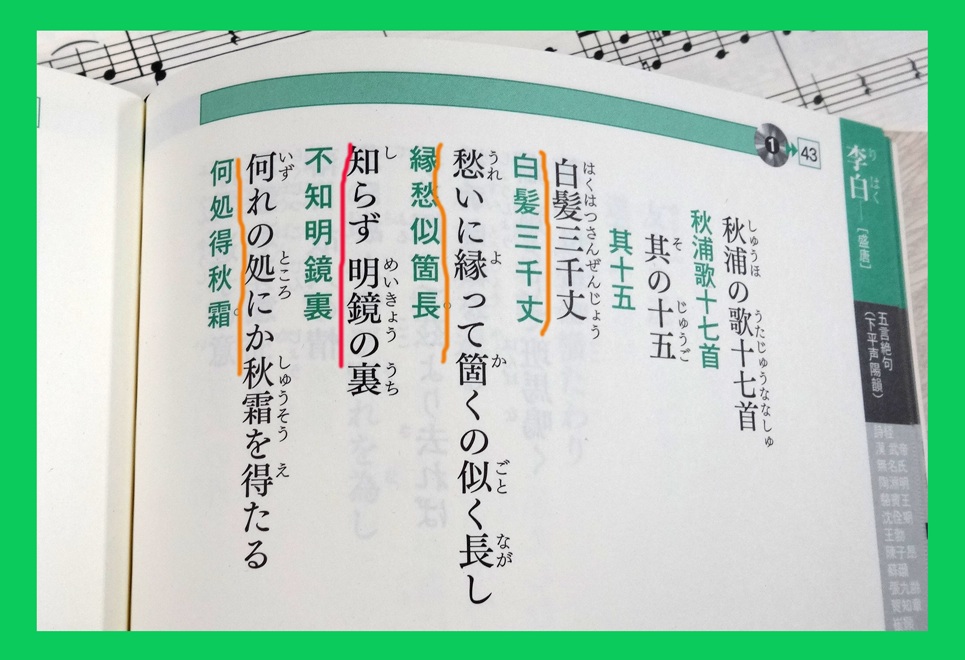 李白[盛唐]
り はく
五言絶句
(下平声陽韻)
漢 武帝
無名氏
陶淵明
駱賓王
沈佺期
王勃
陳子昂
張九齢
賀知章
1 43
しゅうほ うたじゅうななしゅ
秋浦の歌十七首
秋浦歌十七首
そ じゅうご
其の十五
其十五
はくはつさんぜんじょう
白髪三千丈
白髪三千丈
うれ よ か ごと なが
愁いに縁って箇くの似く長し
縁愁似箇長。
し めいきょう うち
知らず 明鏡の裏
不知明鏡裏
いず ところ しゅうそう え
何れの処にか秋霜を得たる
何処得秋霜。